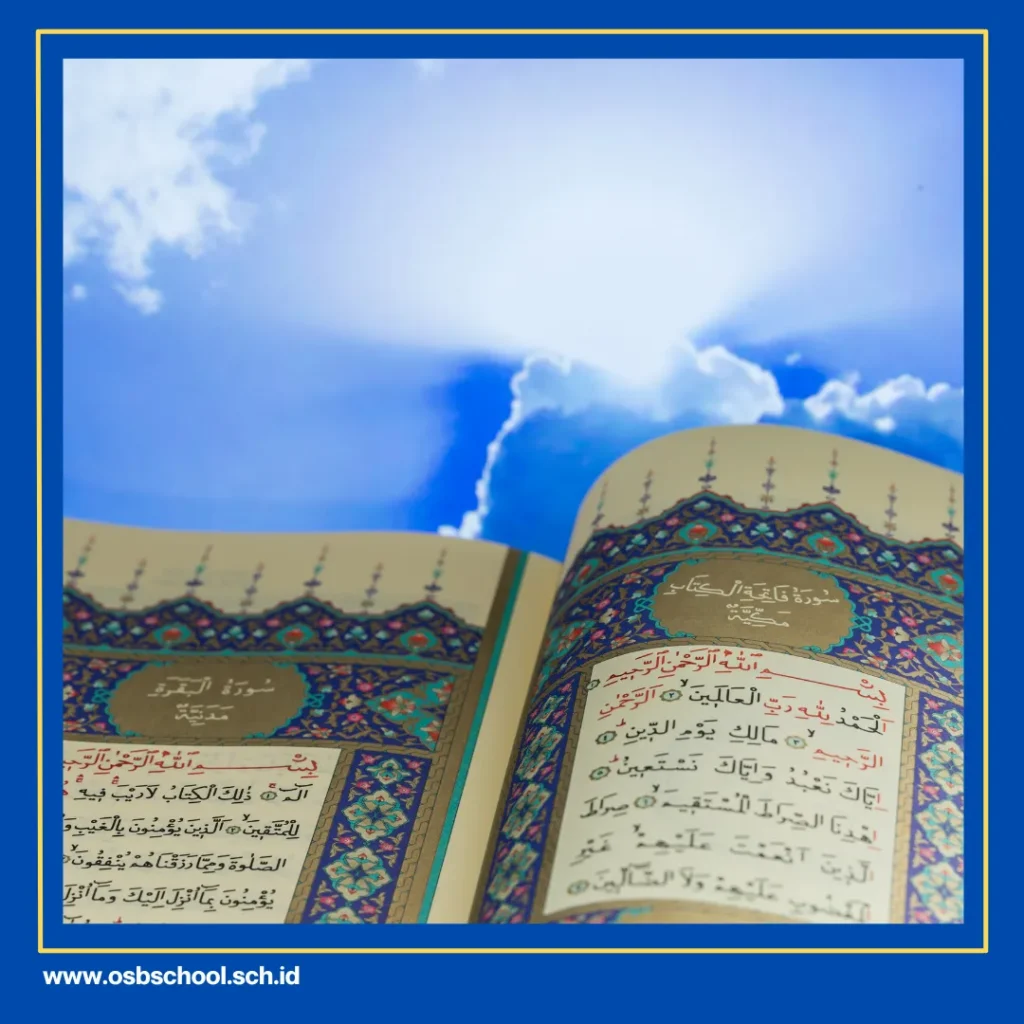 سُورَةُ فَاتِحَةِ الْكِتَابِ
مَكِّيَّةٌ
بِسْمِ اللّٰهِ الرَّحْمٰنِ الرَّحِيمِ ١
اَلْحَمْدُ لِلّٰهِ رَبِّ الْعَالَمِينَ ٢ اَلرَّحْمٰنِ
الرَّحِيمِ ٣ مَالِكِ يَوْمِ الدِّينِ ٤
اِيَّاكَ نَعْبُدُ وَاِيَّاكَ نَسْتَعِينُ ٥
اِهْدِنَا الصِّرَاطَ الْمُسْتَقِيمَ ٦ صِرَاطَ
الَّذِينَ اَنْعَمْتَ عَلَيْهِمْ غَيْرِ
الْمَغْضُوبِ عَلَيْهِمْ وَلَا الضَّالِّينَ ٧
سُورَةُ الْبَقَرَةِ
مَدَنِيَّةٌ
بِسْمِ اللّٰهِ الرَّحْمٰنِ
الٓمٓ ١ ذٰلِكَ الْكِتَابُ لَا رَيْبَ فِيهِ
لِلْمُتَّقِينَ ٢ اَلَّذِينَ يُؤْمِنُونَ بِالْغَيْبِ
الصَّلٰوةَ وَمِمَّا رَزَقْنَاهُمْ يُنْفِقُونَ
يُؤْمِنُونَ بِمَٓا اُنْزِلَ اِلَيْكَ وَمَٓا اُنْزِلَ
www.osbschool.sch.id